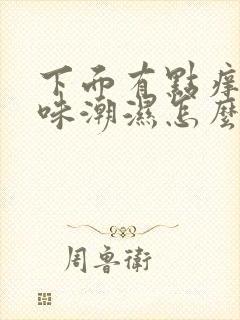 下面有點痒
味潮濕怎麼
周魯衛